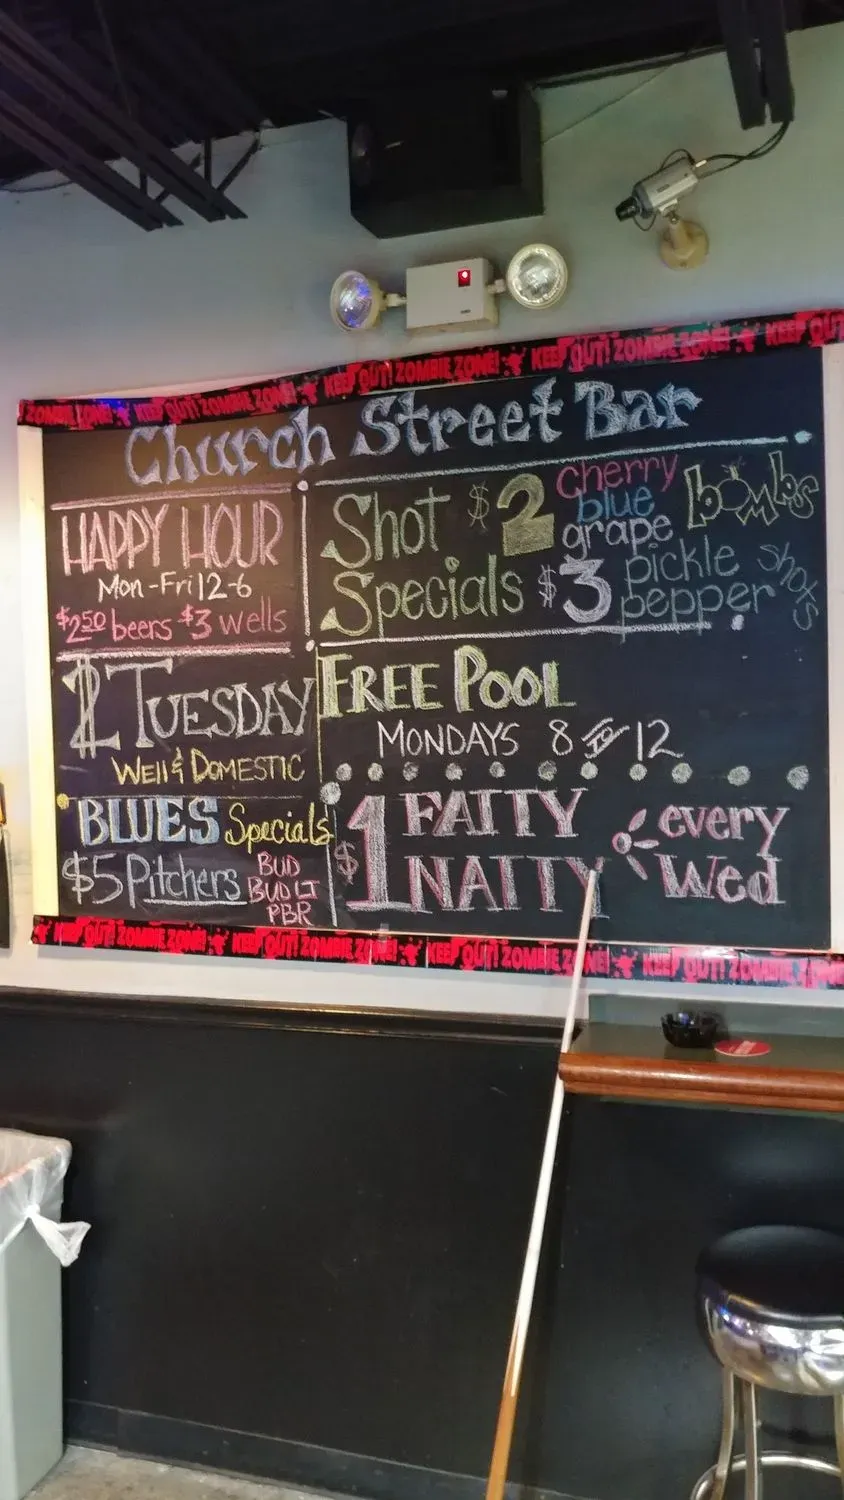 KEEP OUT! ZOMBIE ZONE! KEEP OUT! ZOMBIE ZONE! KEEP OUT! ZOMBIE ZONE! KEEP OUT
Church Street Bar
HAPPY HOUR
Mon-Fri 12-6
$2.50 beers $3 wells
Shot Specials
$2 cherry blue grape bombs
$3 pickle pepper shots
$2 TUESDAY
Well & DOMESTIC
FREE POOL
MONDAYS 8 TO 12
BLUES Specials
$5 Pitchers
BUD
BUD LT
PBR
$1 FATTY NATTY
every Wed
KEEP OUT! ZOMBIE ZONE! KEEP OUT! ZOMBIE ZONE! KEEP OUT! ZOMBIE ZONE! KEEP OUT! ZOMBIE ZONE